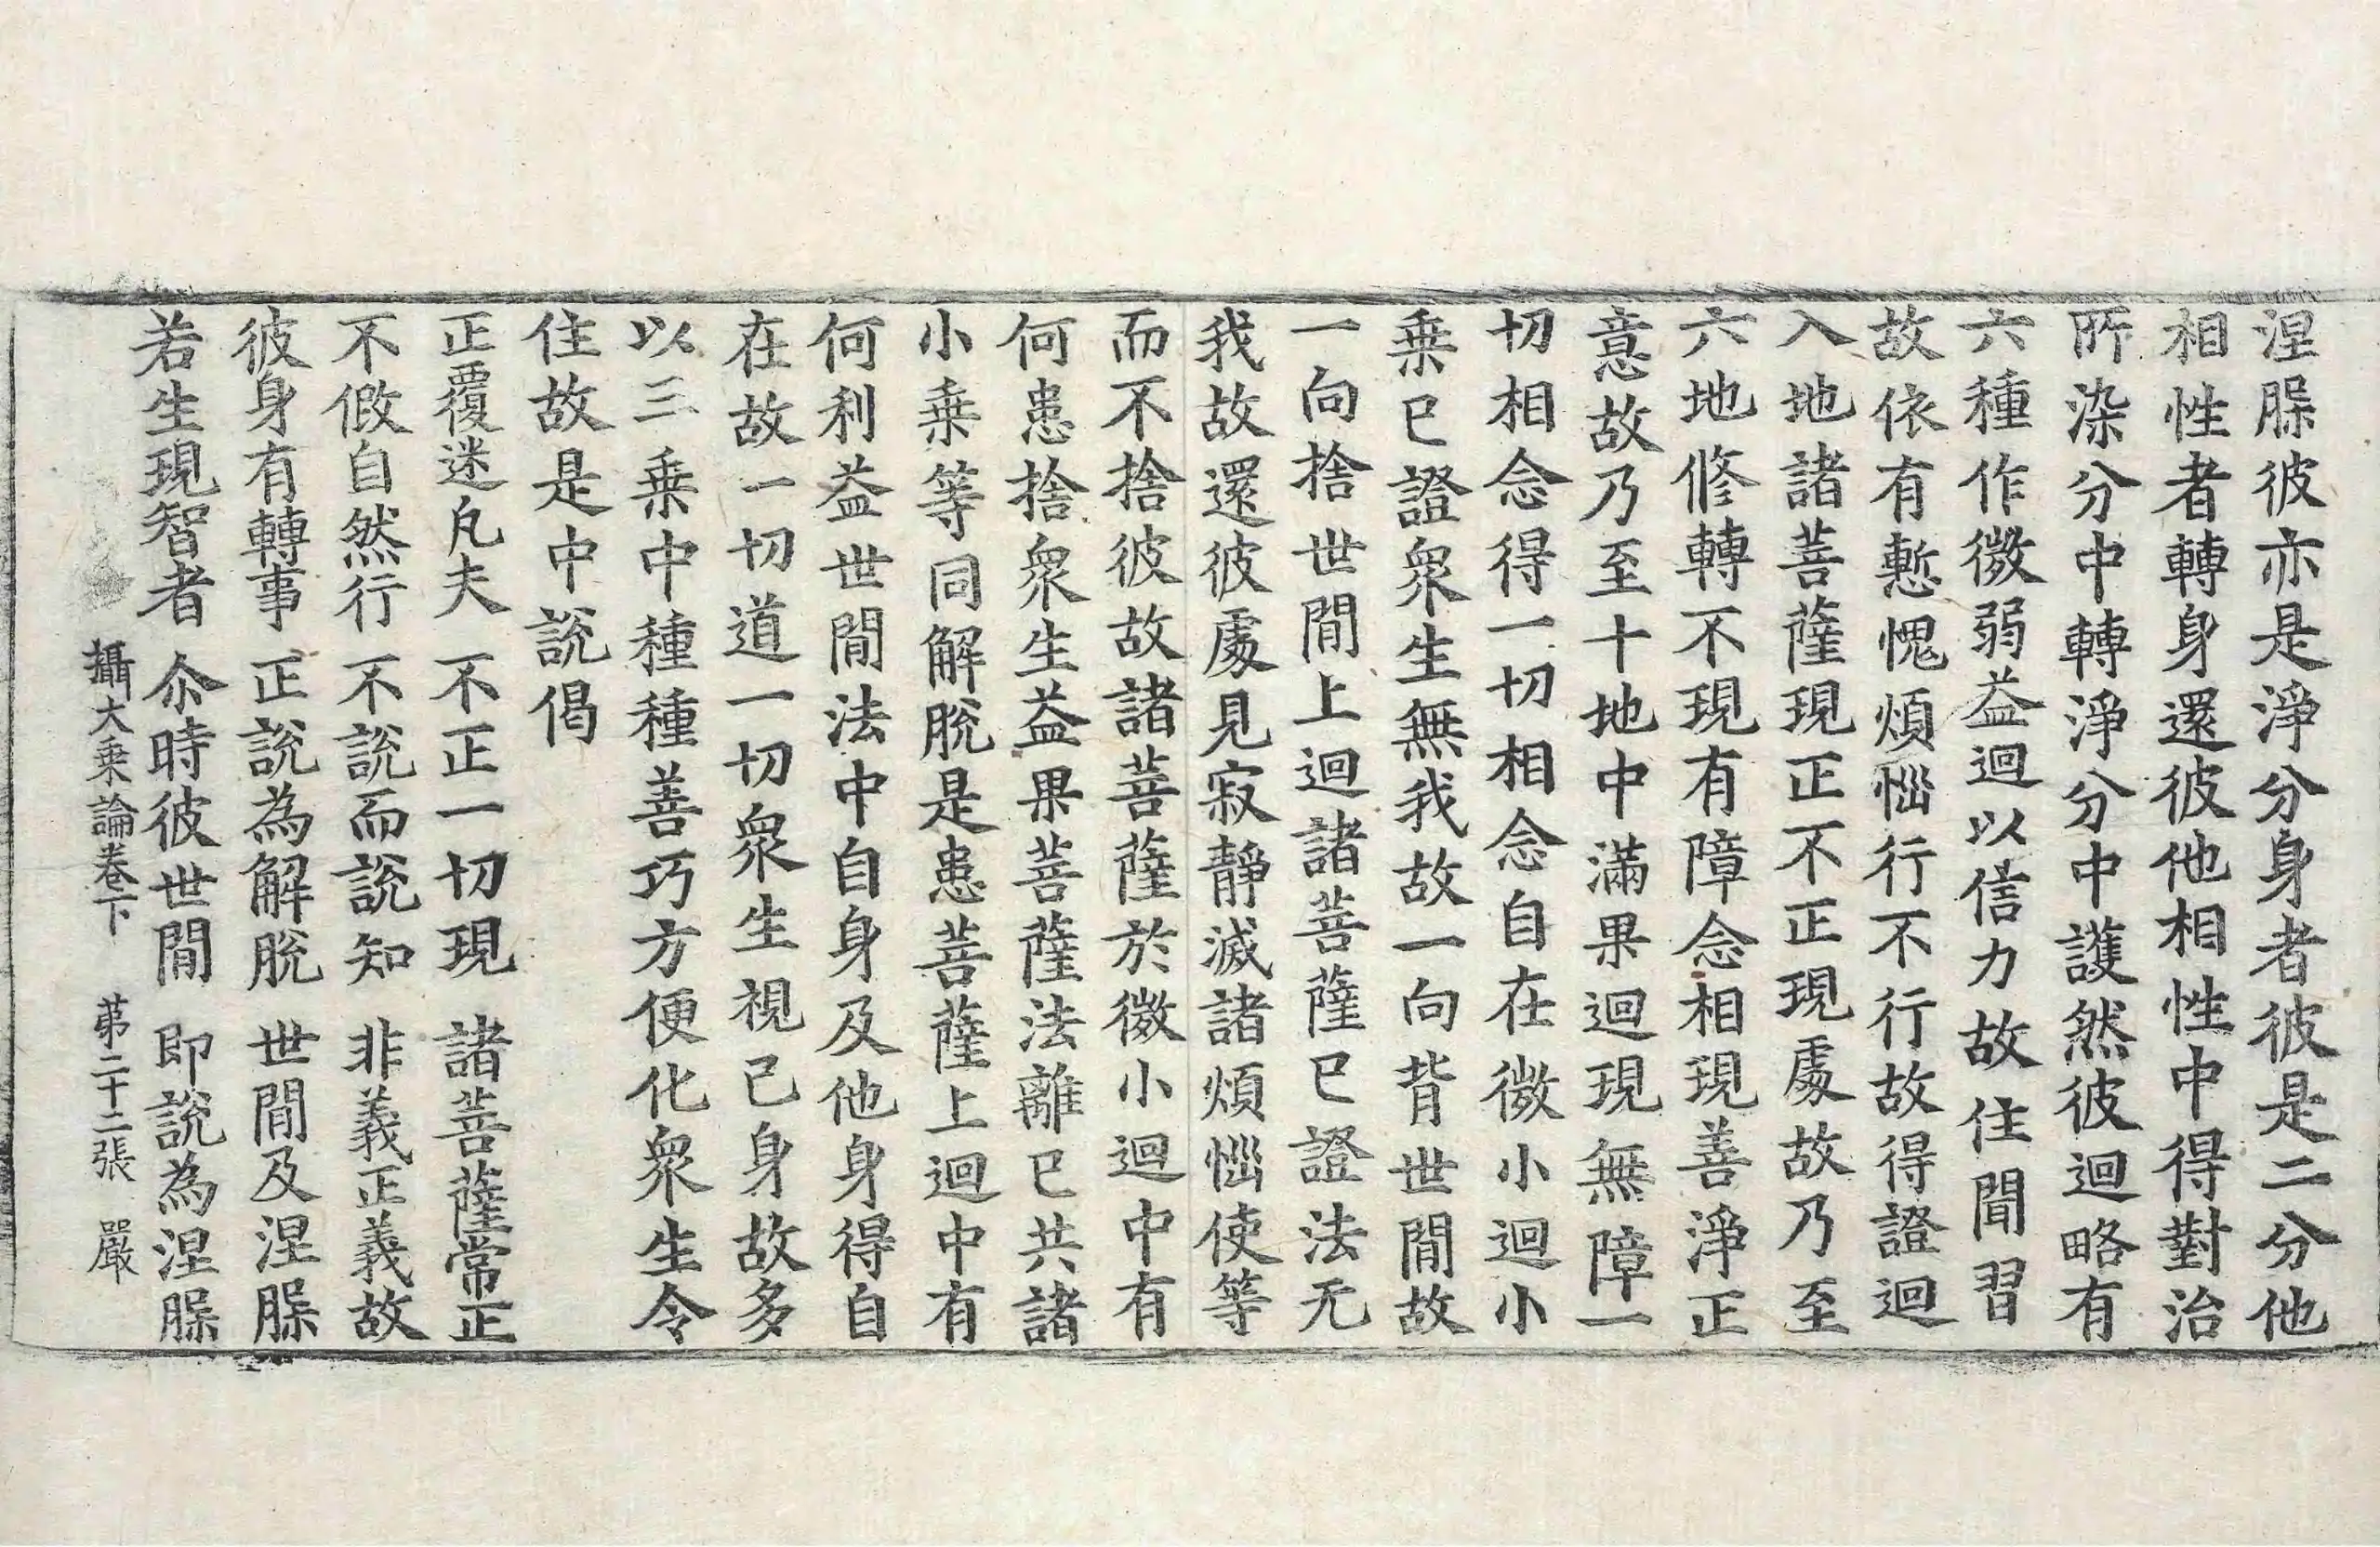 涅脲彼亦是淨分身者彼是二分他
相性者轉身還彼他相性中得對治
所染分中轉淨分中護然彼迴略有
六種作微弱益迴以信力故住聞習
故依有慙愧煩惱行不行故得證迴
入地諸菩薩現正不正現處故乃至
六地修轉不現有障念相現善淨正
意故乃至十地中滿果迴現無障一
切相念得一切相念自在微小迴小
乗已證衆生無我故一向背世閒故
一向捨世閒上迴諸菩薩已證法无
我故還彼處見寂靜滅諸煩惱使等
而不捨彼故諸菩薩於微小迴中有
何患捨衆生益果菩薩法離已共諸
小乗等同解脫是患菩薩上迴中有
何利益世閒法中自身及他身得自
在故一切道一切衆生視己身故多
以三乗中種種善巧方便化衆生令
住故是中說偈
正覆迷凡夫　不正一切現　諸菩薩常正
不假自然行　不說而說知　非義正義故
彼身有轉事　正說為解脫　世間及涅脲
若生現智者　尒時彼世閒　即說為涅脲
攝大乗論卷下　苐二十二張　嚴